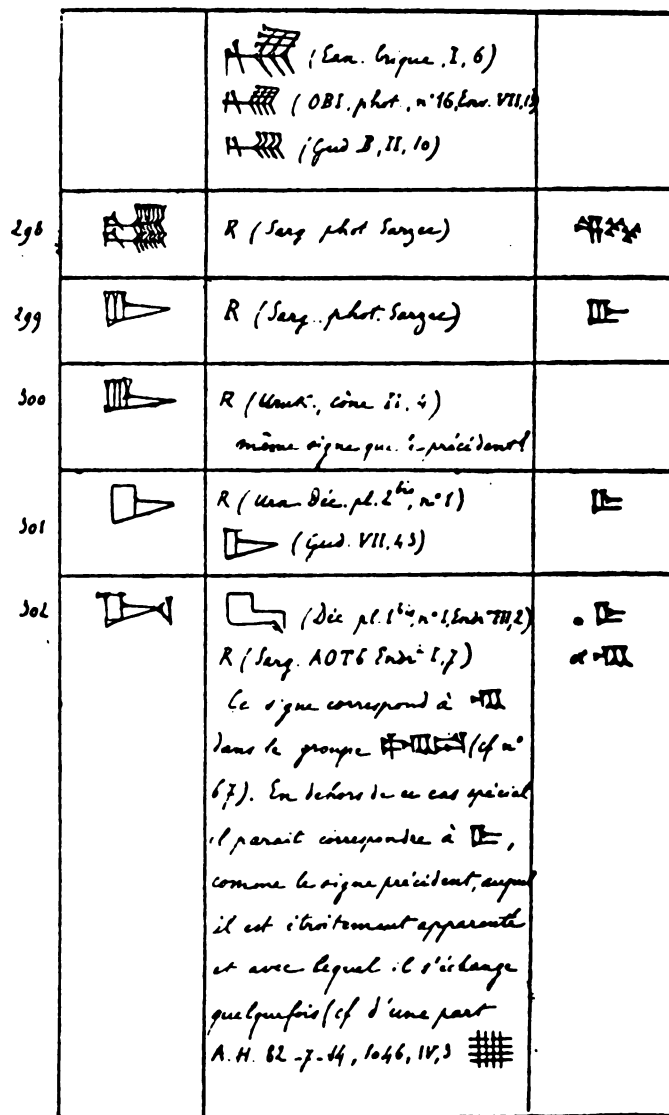 (Ean. brique, I, 6)
(OBI. phot., n° 16, VII, 
(Gud B, II, 10)
298 R (Sarg phot Sarzec)
299 R (Sarg. phot. Sarzec)
300 R (Uruk., cône II, 4)
même signe que précédent
301 R (Urn. Déc. pl. 2 bis, n° 1)
(Gud. VII, 43)
302 (Déc pl. bis, n° 1, III, 2)
R (Sarg. AOT6 I, 7)
Ce signe correspond à
dans le groupe (cf n°
67). En dehors de ce cas spécial
il parait correspondre à ,
comme le signe précédent, auquel
il est étroitement apparenté
et avec lequel il s'échange
quelquefois (cf d'une part
A.H. 82-7-14, 1046, IV, 3